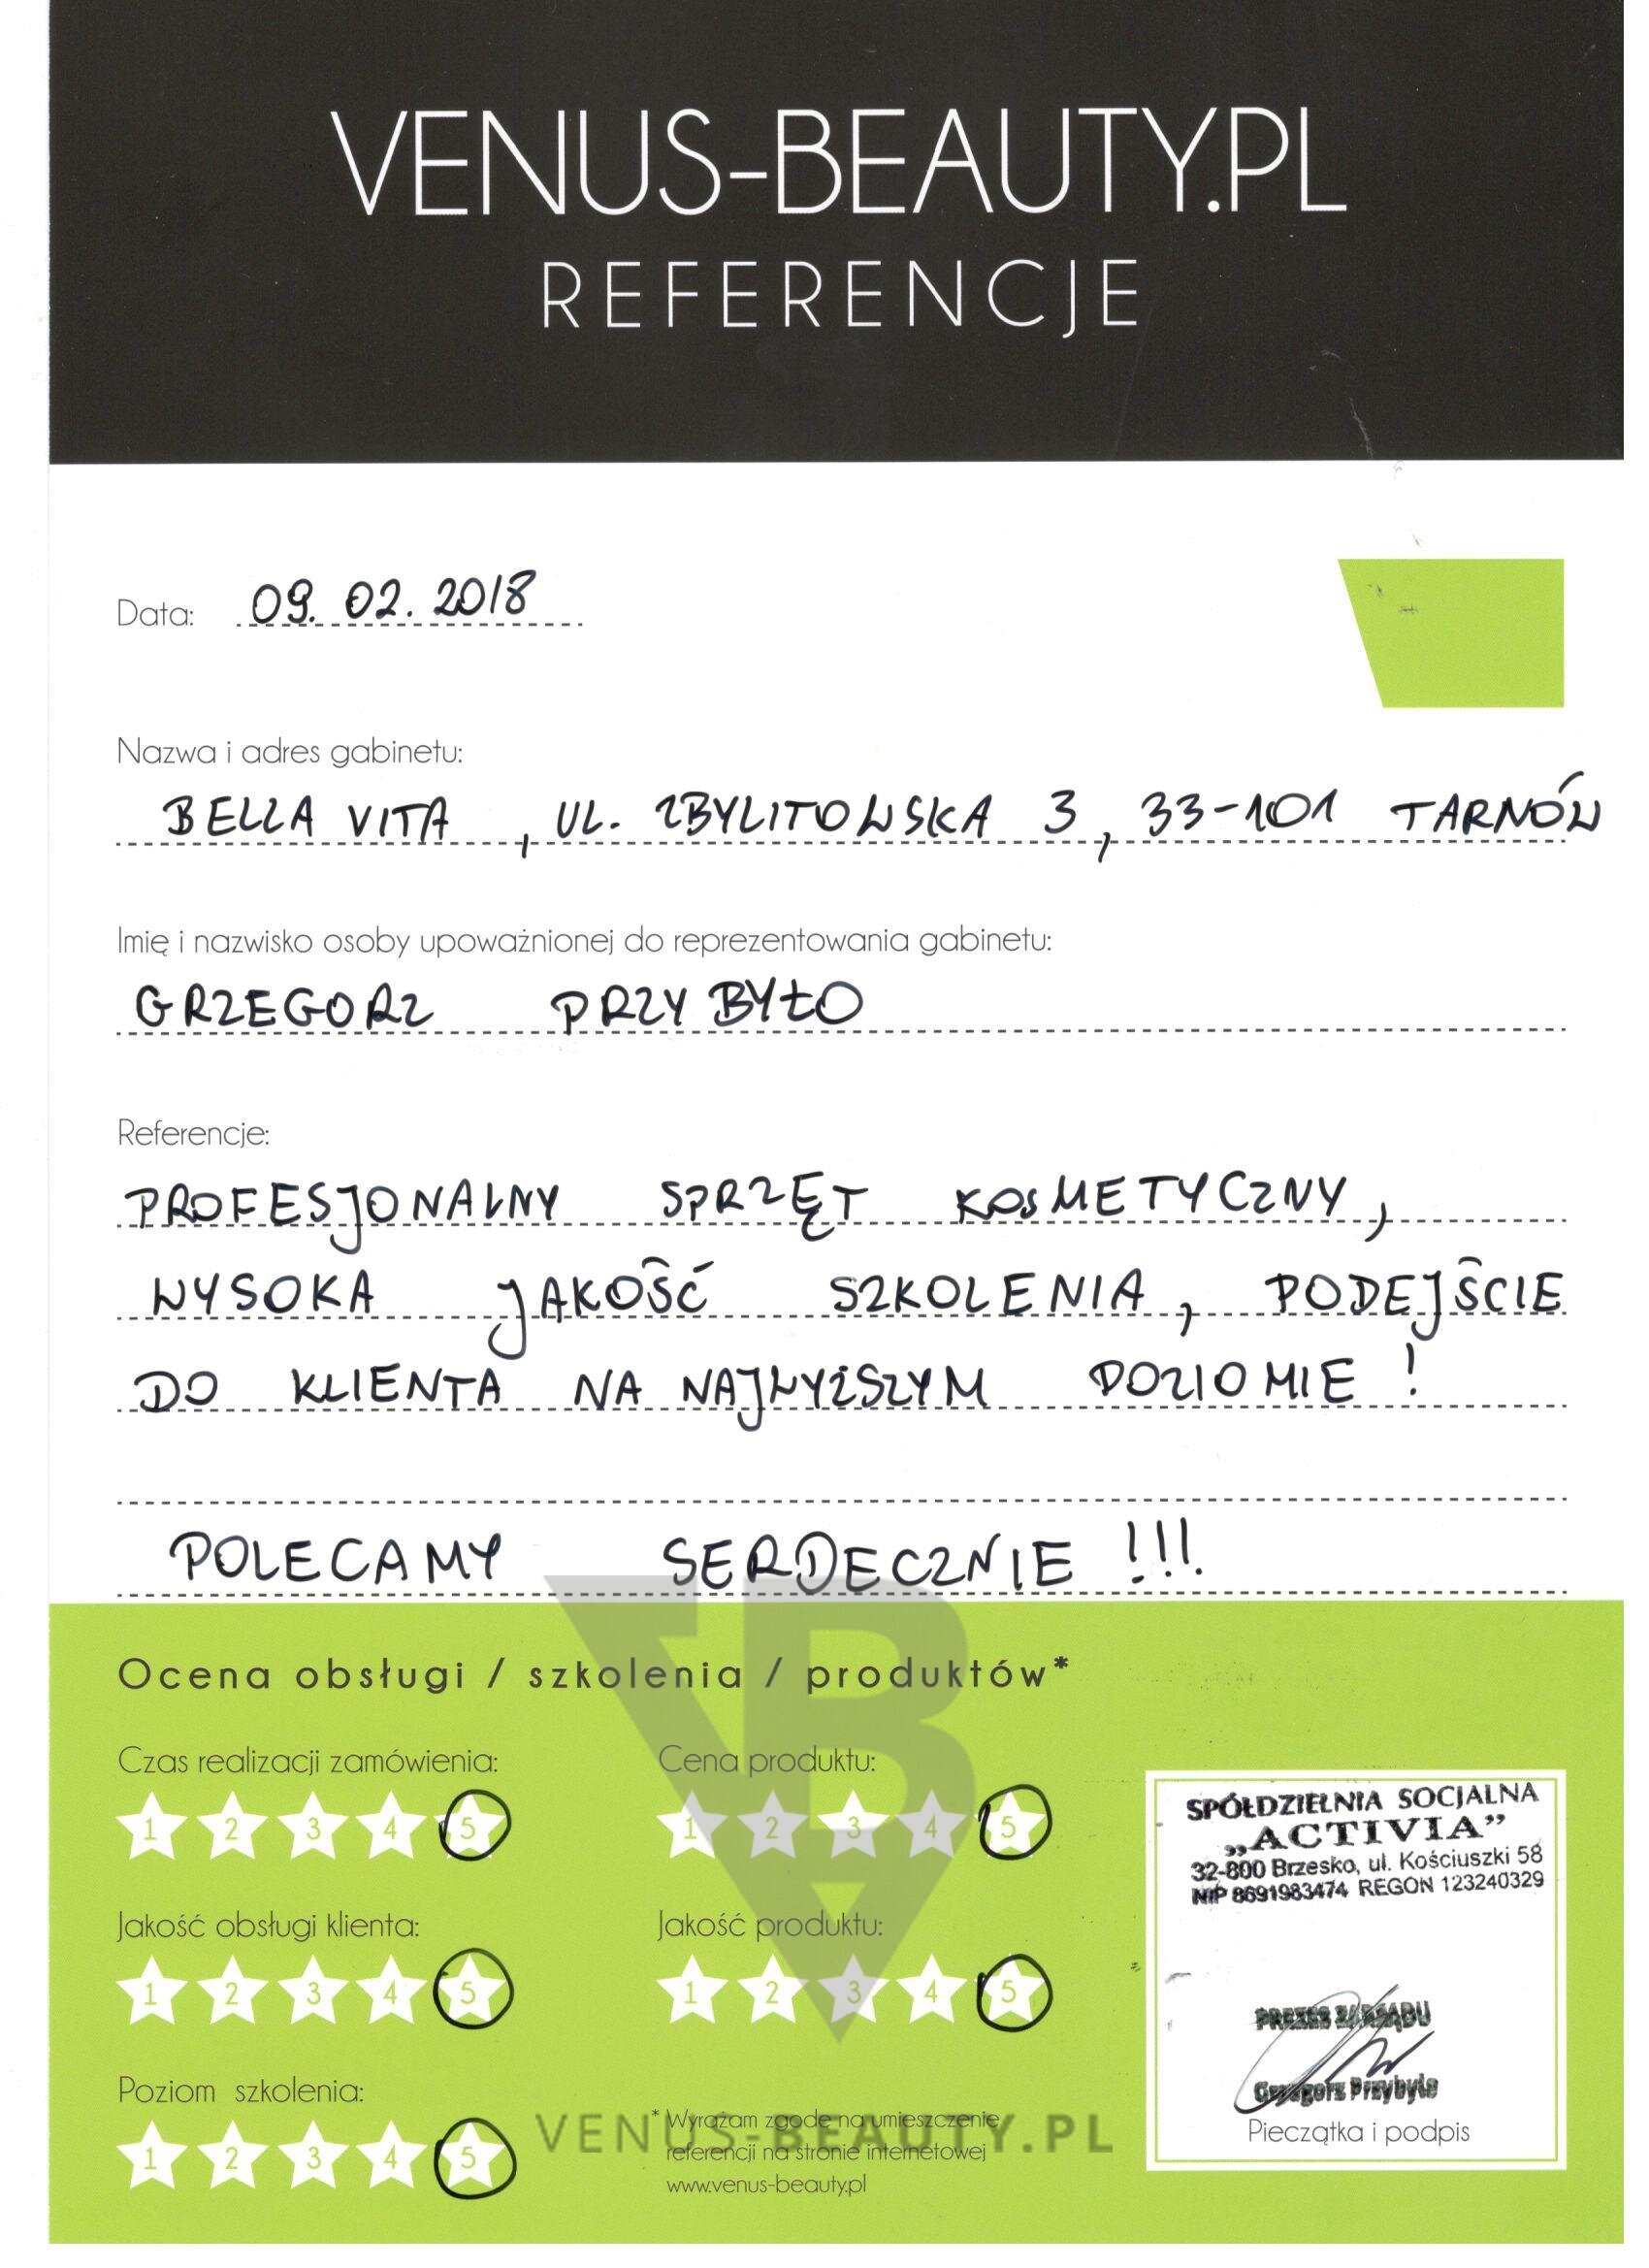 VENUS-BEAUTY.PL
REFERENCJE
Data: 09.02.2018
Nazwa i adres gabinetu:
BELLA VITA, UL. ZBYLITOWSKA 3, 33-101 TARNÓW
Imię i nazwisko osoby upoważnionej do reprezentowania gabinetu:
GRZEGORZ PRZYBYŁO
Referencje:
PROFESJONALNY SPRZĘT KOSMETYCZNY,
WYSOKA JAKOŚĆ SZKOLENIA, PODEJŚCIE
DO KLIENTA NA NAJWYŻSZYM POZIOMIE!
POLECAMY SERDECZNIE!!!
Ocena obsługi / szkolenia / produktów*
Czas realizacji zamówienia:
1 2 3 4 5
Cena produktu:
1 2 3 4 5
Jakość obsługi klienta:
1 2 3 4 5
Jakość produktu:
1 2 3 4 5
Poziom szkolenia:
1 2 3 4 5
* Wyrażam zgodę na umieszczenie
referencji na stronie internetowej
www.venus-beauty.pl
VB
VENUS-BEAUTY.PL
SPÓŁDZIELNIA SOCJALNA
„ACTIVIA”
32-800 Brzesko, ul. Kościuszki 58
NIP 8691983474 REGON 123240329
PREZES ZARZĄDU
Grzegorz Przybyło
Pieczątka i podpis